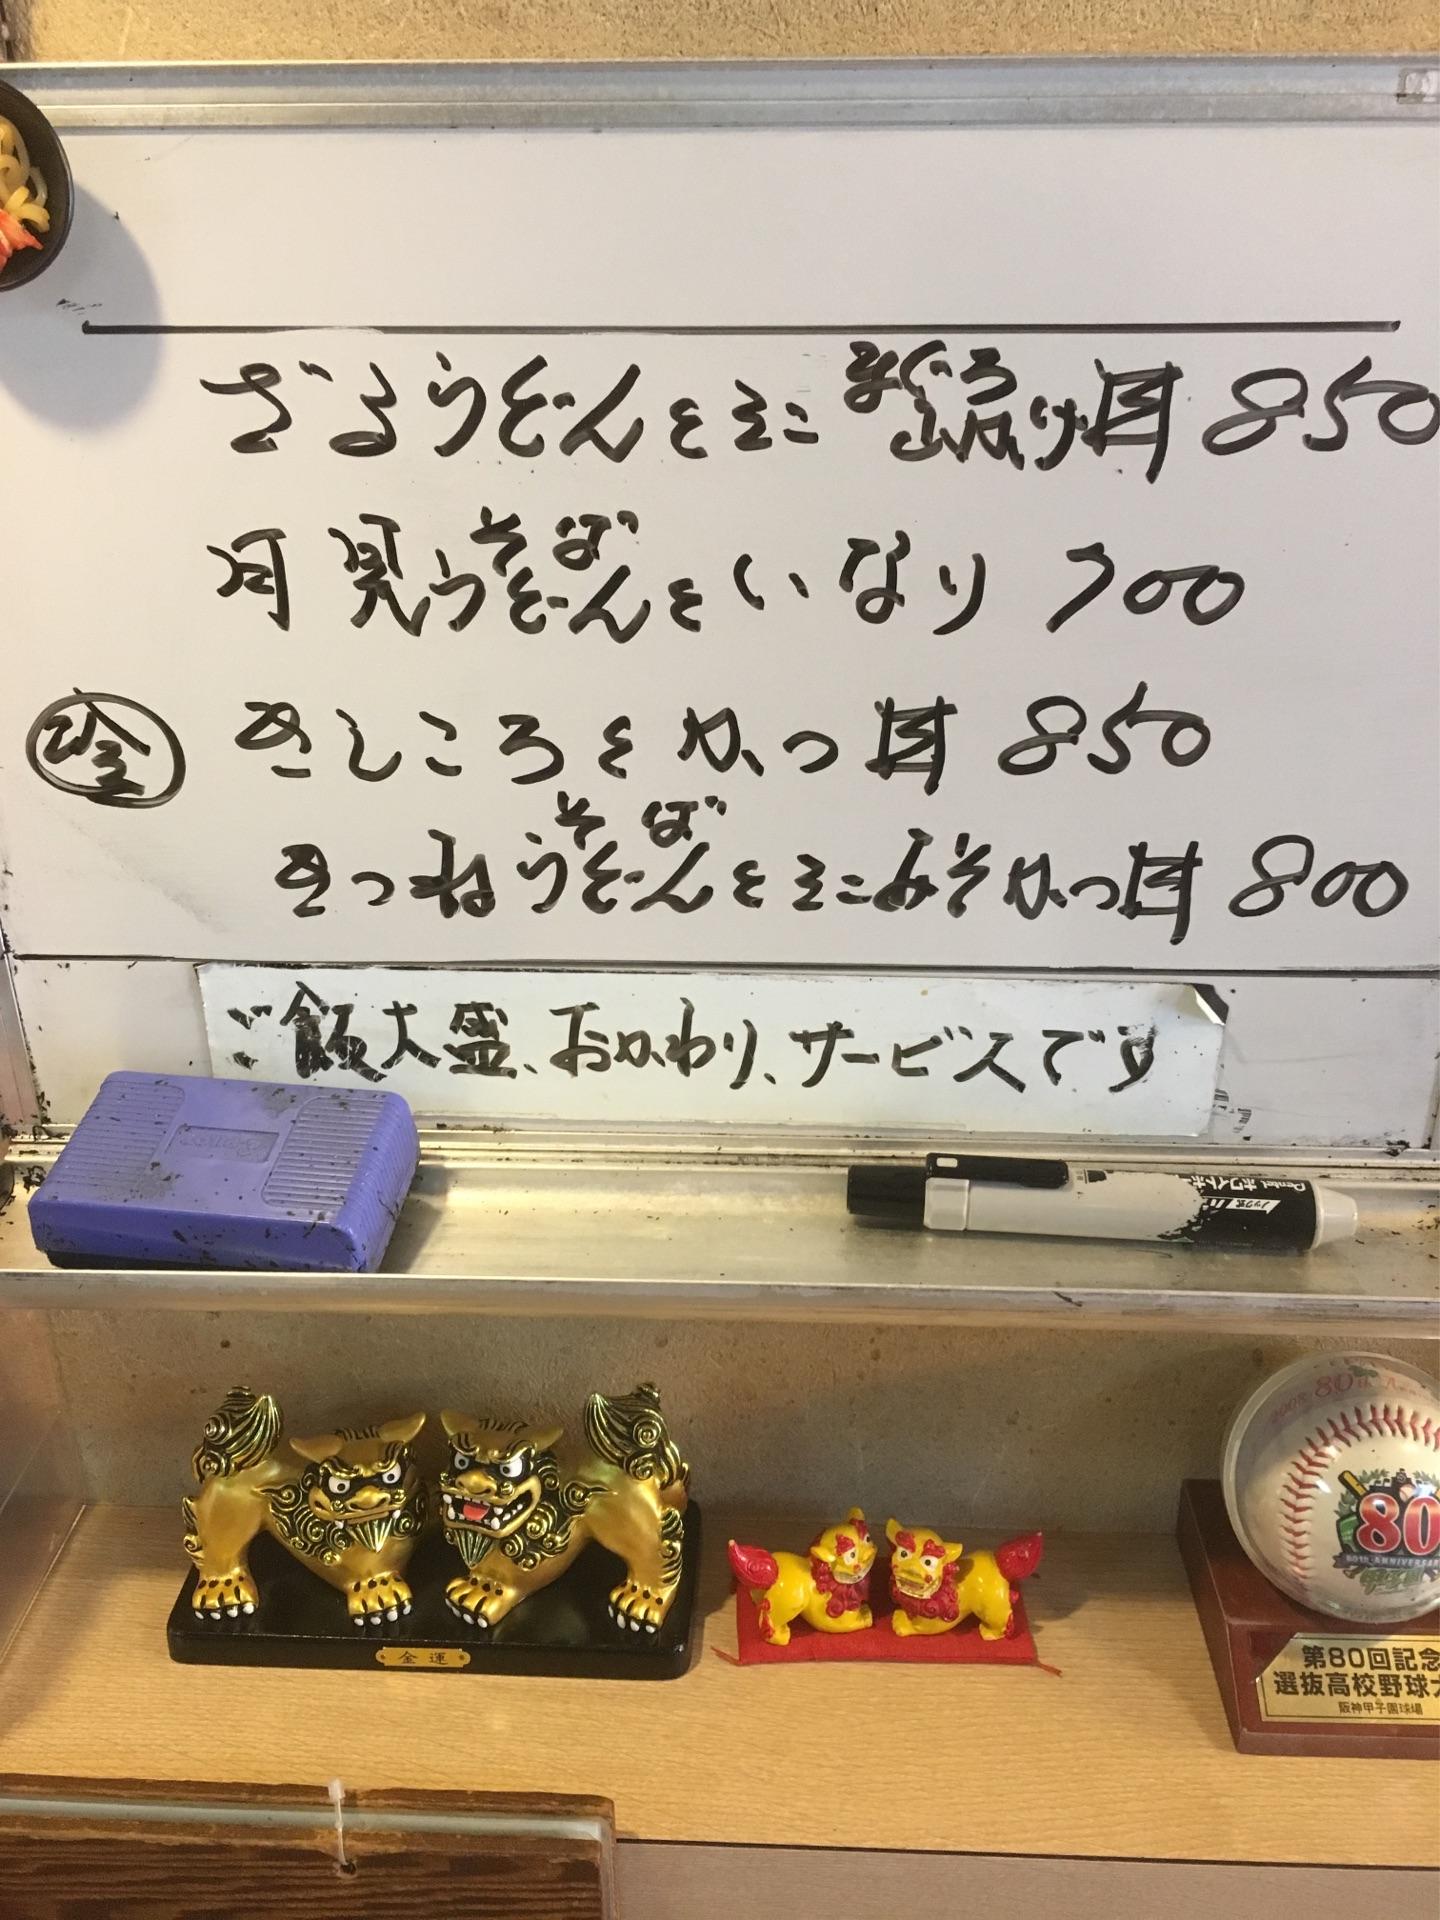 ざるうどんとミニまぐろ山かけ丼 850
月見うどんといなり 700
そば
冷 きしころとかつ丼 850
きつねうどんとミニみそかつ丼 800
そば
ご飯大盛、おかわり、サービスです
Pentel ホワイトボ
ノック式
金運
2008 80th
80
80TH ANNIVERSARY
第80回記念
選抜高校野球大
阪神甲子園球場